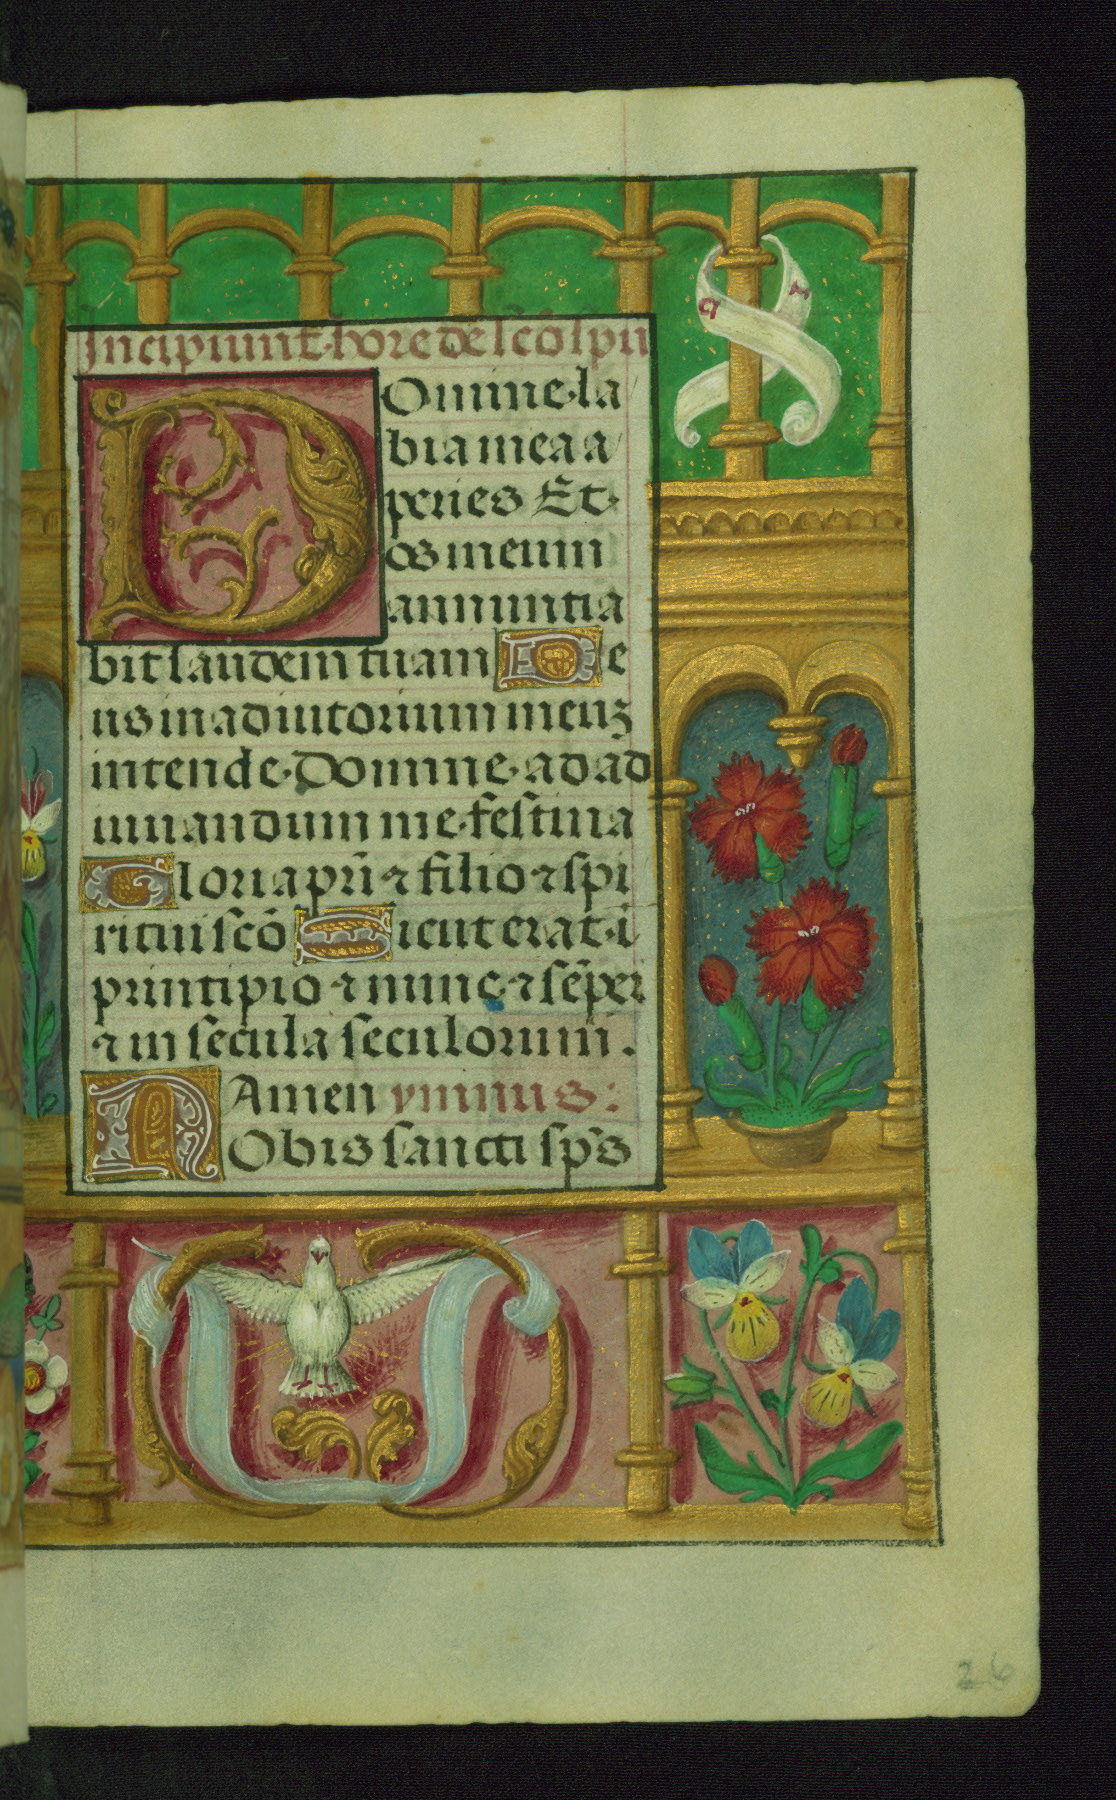 Incipiunt·hore de sc̃õ spu
Domine·la
bia mea a
peries Et·
os meum
annuntia
bit laudem tuam De
us in adiutorium meuꝫ
intende·Domine·ad ad
iuuandum me·festina
Gloria pr̃i ⁊ filio ⁊ spi
ritui sc̃õ Sicut erat·i
printipio ⁊ nunc ⁊ sẽper
⁊ in secula seculorum.
Amen ymnus:
Nobis sancti sp̃s
26